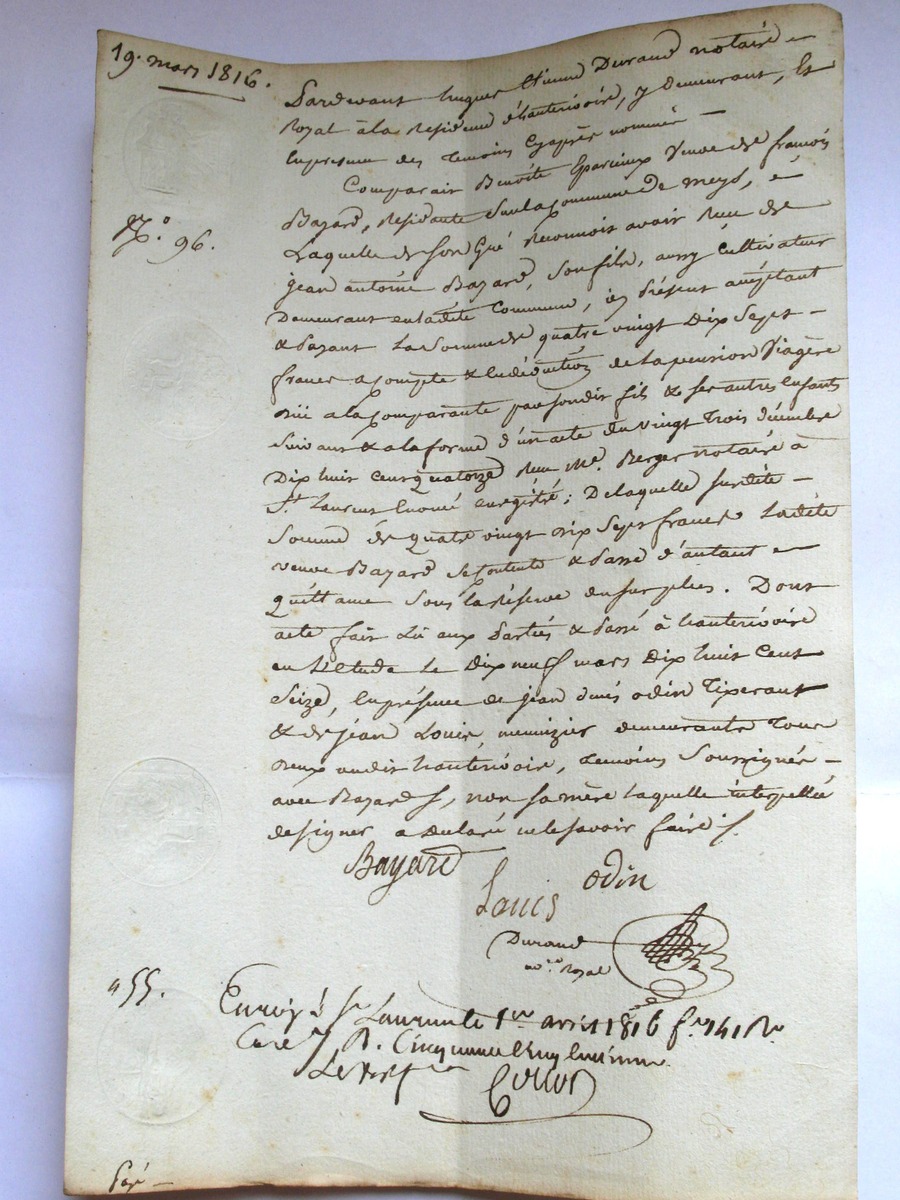 19. mars 1816.
Pardevant hugues Etienne Durand notaire
Royal à la Residence d'hauterivoire, y demeurant, Et
En presence des temoins Cyaprès nommés —
Comparait Benoite Eparcieux Veuve de françois
N.º 96.
Bayard, Residante Sur la Commune de meys,
Laquelle de son Gré Reconnoit avoir Reçu de
jean antoine Bayard, Son fils, aussy Cultivateur
Demeurant en ladite Commune, ici présent acceptant
& Payant La Somme de quatre vingt Dix Sept —
francs a Compte & En déduction de la pension Viagère
düe a la Comparante par son dit fils & ses autres Enfants
Suivant & a la forme d'un acte du vingt trois décembre
Dix huit cent quatorze Reçu Me. Berger notaire à
St. Laurent Enregistré ; De laquelle susdite —
Somme de quatre vingt dix Sept francs Ladite
veuve Bayard Se Contente & Passe d'autant
quittance Sous la Réserve du surplus. Dont
acte fait Lu aux Parties & Passé à hauterivoire
en L'Etude Le Dix neuf mars Dix huit Cent
Seize, En présence de jean odin Tixerant
& de jean Louis, menuizier demeurants Tous
deux audit hauterivoire, temoins Soussignés —
avec Bayard f., non sa mère laquelle interpellée
de signer a declaré ne le savoir faire ./.
Bayard
Louis
odin
Durand
Not.re Royal
55.
St Laurent le 1er avril 1816 f.º 141
R. Cinquante Cinq Centimes
Payé —